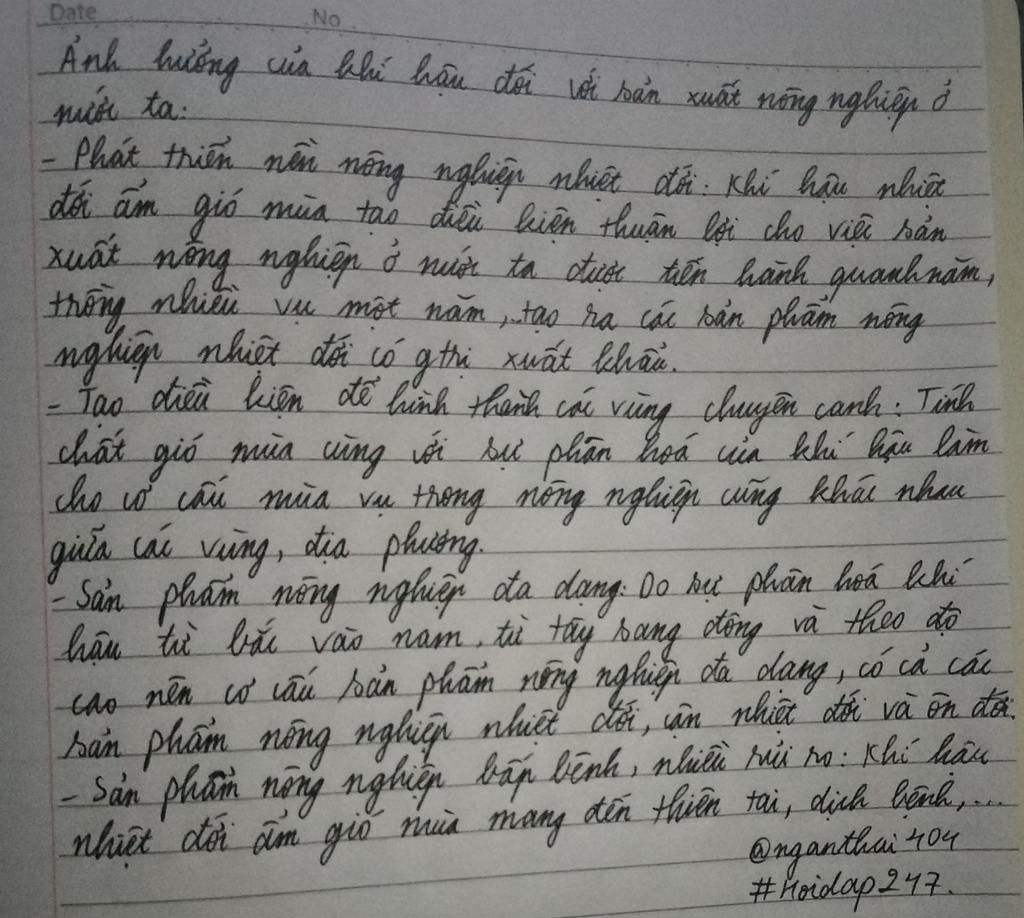 Date No
Ảnh hưởng của khí hậu đối với sản xuất nông nghiệp ở
nước ta:
- Phát triển nền nông nghiệp nhiệt đới: Khí hậu nhiệt
đới ẩm gió mùa tạo điều kiện thuận lợi cho việc sản
xuất nông nghiệp ở nước ta được tiến hành quanh năm,
trồng nhiều vụ một năm, tạo ra các sản phẩm nông
nghiệp nhiệt đới có gtrị xuất khẩu.
- Tạo điều kiện để hình thành các vùng chuyên canh: Tính
chất gió mùa cùng với sự phân hoá của khí hậu làm
cho cơ cấu mùa vụ trong nông nghiệp cũng khác nhau
giữa các vùng, địa phương.
- Sản phẩm nông nghiệp đa dạng: Do sự phân hoá khí
hậu từ bắc vào nam, từ tây sang đông và theo độ
cao nên cơ cấu sản phẩm nông nghiệp đa dạng, có cả các
sản phẩm nông nghiệp nhiệt đới, cận nhiệt đới và ôn đới.
- Sản phẩm nông nghiệp bấp bênh, nhiều rủi ro: Khí hậu
nhiệt đới ẩm gió mùa mang đến thiên tai, dịch bệnh,...
@nganthai404
#Hoidap247.